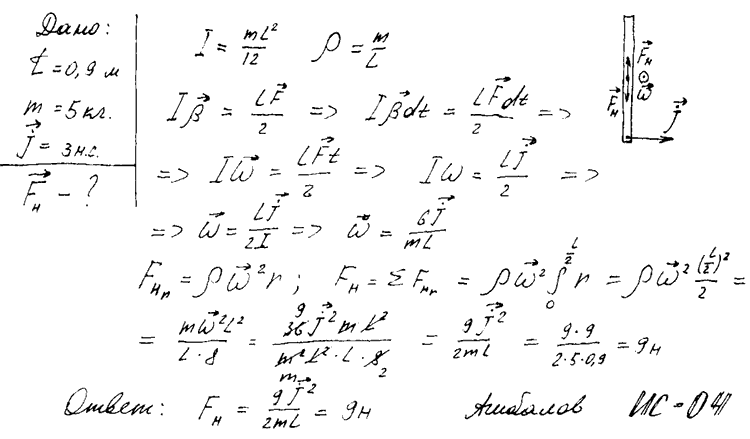 Дано:
L = 0,9 м
m = 5 кг.
J⃗ = 3 н.с.
F⃗н – ?
I = mL²/12   ρ = m/L
Iβ⃗ = LF⃗/2 => Iβ⃗dt = LF⃗dt/2 =>
=> Iω⃗ = LF⃗t/2 => Iω = LJ⃗/2 =>
=> ω⃗ = LJ⃗/2I => ω⃗ = 6J⃗/mL
Fнn = ρω⃗²r; Fн = ΣFнr = ρω⃗² ∫₀^(L/2) r = ρω⃗² (L/2)²/2 =
= mω⃗²L²/L·8 = 9 36J⃗²mL²/m²L²·L·8 m 2 = 9J⃗²/2mL = 9·9/2·5·0,9 = 9н
Ответ: Fн = 9J⃗²/2mL = 9н
ИС-04
F⃗н
ω⃗
F⃗н
J⃗